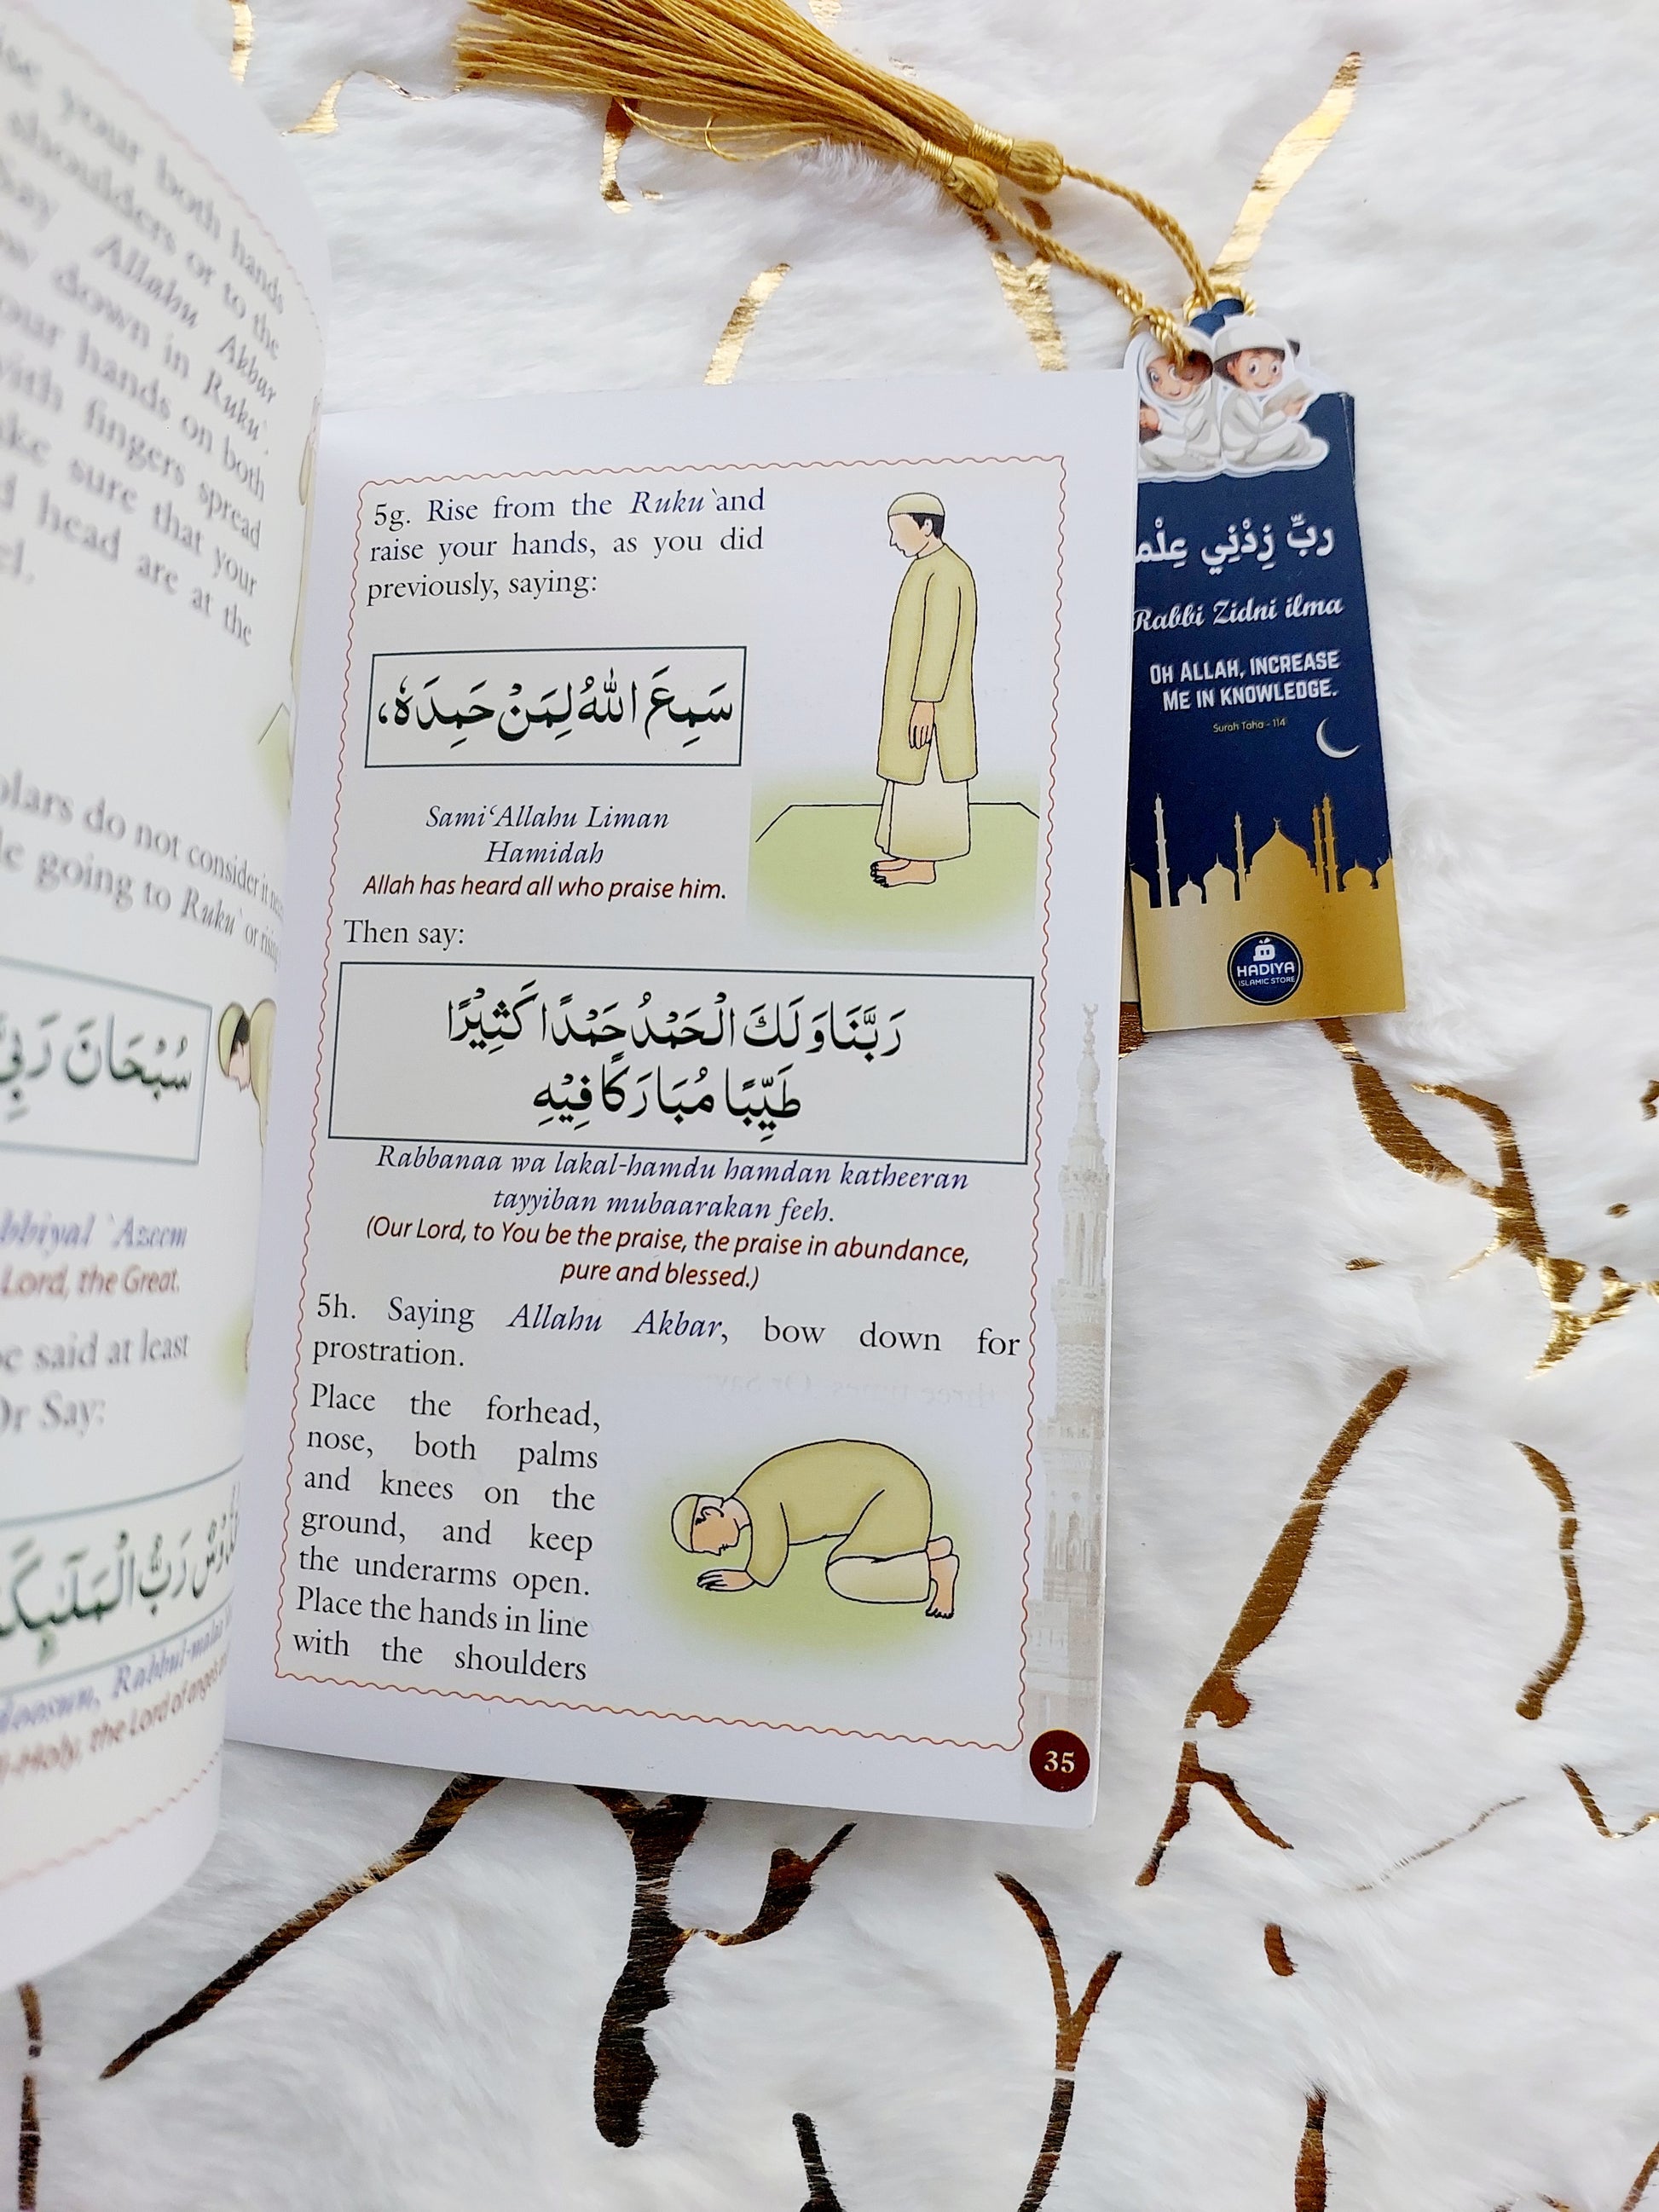 your both hands
shoulders or to the
Say Allahu Akbar
down in Ruku`.
your hands on both
with fingers spread
sure that your
head are at the
do not consider it
going to Ruku` or
سُبْحَانَ رَبِّيَ
`Azeem
Lord, the Great.
said at least
Or Say:
رَبُّ الْمَلَٓئِكَ
the Lord of angels
5g. Rise from the Ruku`and
raise your hands, as you did
previously, saying:
سَمِعَ اللّٰهُ لِمَنْ حَمِدَهٗ،
Sami‘Allahu Liman
Hamidah
Allah has heard all who praise him.
Then say:
رَبَّنَا وَ لَكَ الْحَمْدُ حَمْدًا كَثِيْرًا
طَيِّبًا مُبَارَكًا فِيْهِ
Rabbanaa wa lakal-hamdu hamdan katheeran
tayyiban mubaarakan feeh.
(Our Lord, to You be the praise, the praise in abundance,
pure and blessed.)
5h. Saying Allahu Akbar, bow down for
prostration.
Place the forhead,
nose, both palms
and knees on the
ground, and keep
the underarms open.
Place the hands in line
with the shoulders
35
رَبِّ زِدْنِي عِلْم
Rabbi Zidni ilma
OH ALLAH, INCREASE
ME IN KNOWLEDGE.
Surah Taha - 114
HADIYA
ISLAMIC STORE